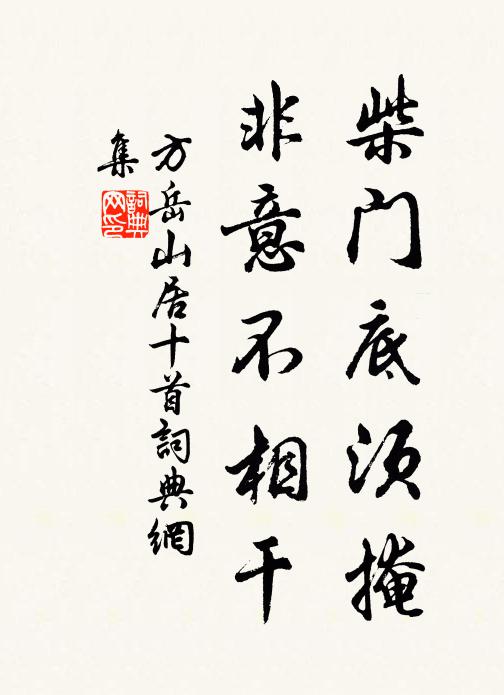 柴门底须掩
非意不相干
方岳山居十首詞典網
集
詞典
网印